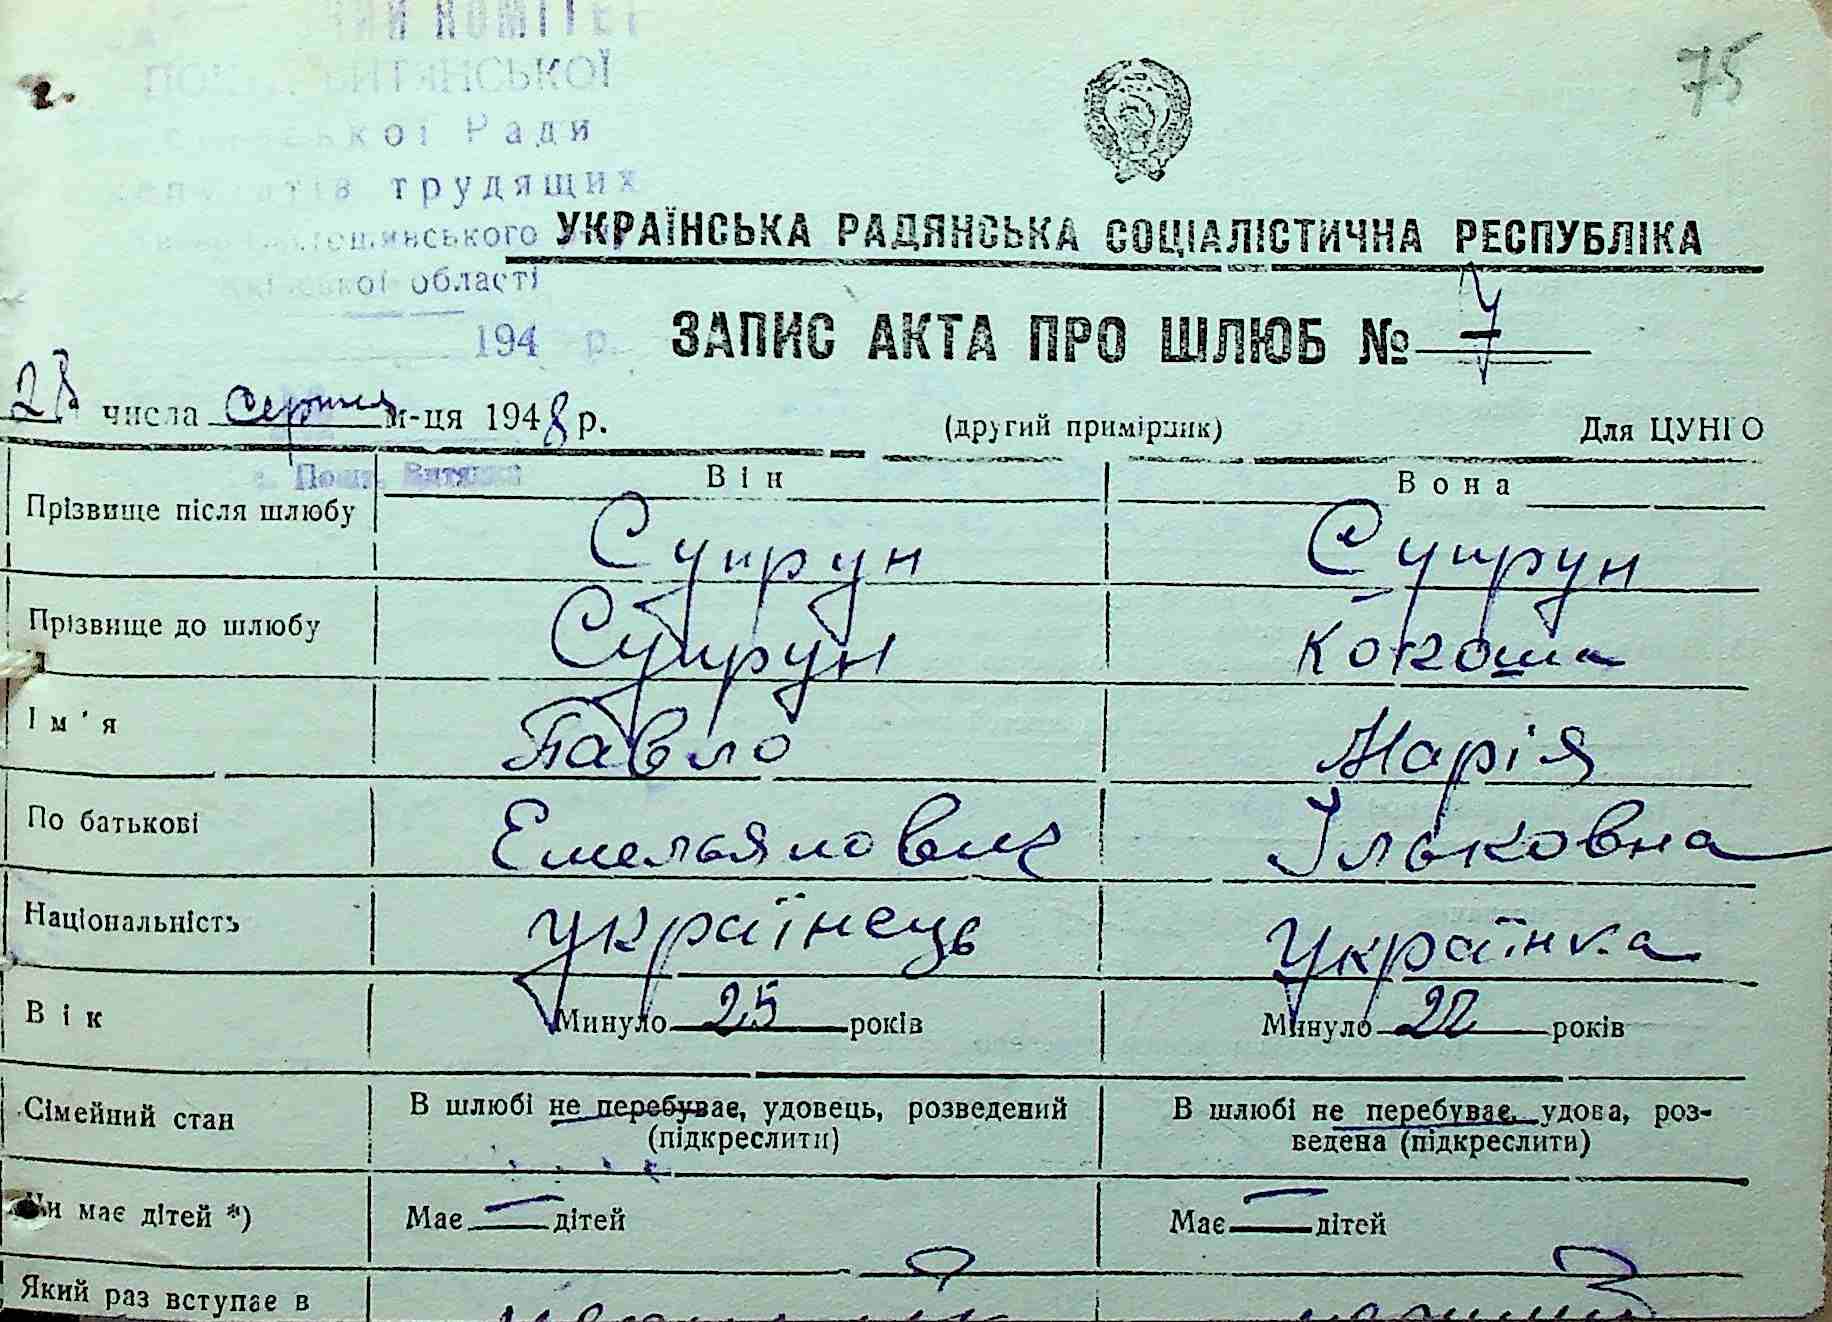 75
КОМІТЕТ
Ради
трудящих
області
УКРАЇНСЬКА РАДЯНСЬКА СОЦІАЛІСТИЧНА РЕСПУБЛІКА
194 р.
ЗАПИС АКТА ПРО ШЛЮБ № 7
28 числа Серпня м-ця 1948 р.
(другий примірник) Для ЦУНГО
Він Вона
Прізвище після шлюбу Супрун Супрун
Прізвище до шлюбу Супрун Кокоша
Ім'я Павло Марія
По батькові Емельянович Ільковна
Національність українець Українка
Вік Минуло 25 років Минуло 22 років
Сімейний стан В шлюбі не перебуває, удовець, розведений В шлюбі не перебуває, удова, роз-
(підкреслити) ведена (підкреслити)
Чи має дітей *) Має — дітей Має — дітей
Який раз вступає в